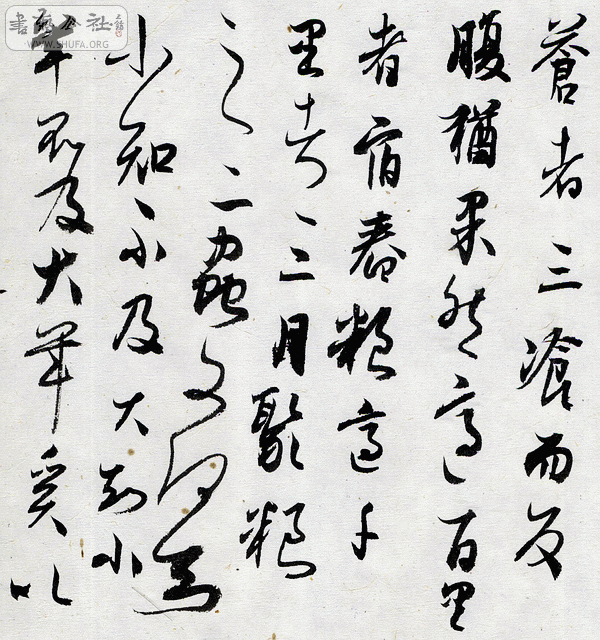 蒼者三飡而反
腹猶果然適百里
者宿舂粮適千
里者三月聚粮
之二蟲又何知
小知不及大知小
年不及大年奚以
書法公社
WWW.SHUFA.ORG